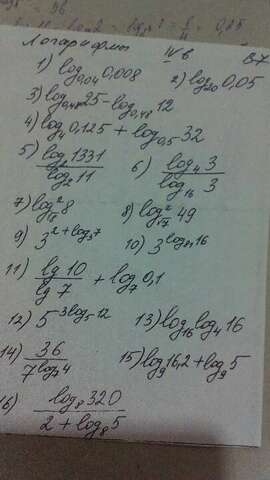 Логарифмы IV в В-7
1) log₀,₀₄ 0,008 2) log₂₀ 0,05
3) log₀,₄₈ 25 - log₀,₄₈ 12
4) log₄ 0,125 + log₀,₅ 32
5) log₂ 1331 / log₂ 11 6) log₄ 3 / log₁₆ 3
7) 8 8) 49
9) 3^(2+log₃ 7) 10) 3^(log 16)
11) lg 10 / lg 7 + log₇ 0,1
12) 5^(-3log₅ 12) 13) log₁₆ log₄ 16
14) 36 / 7^(log₇ 4) 15) log₉ 16,2 + log₉ 5
16) log₈ 320 / 2 + log₈ 5